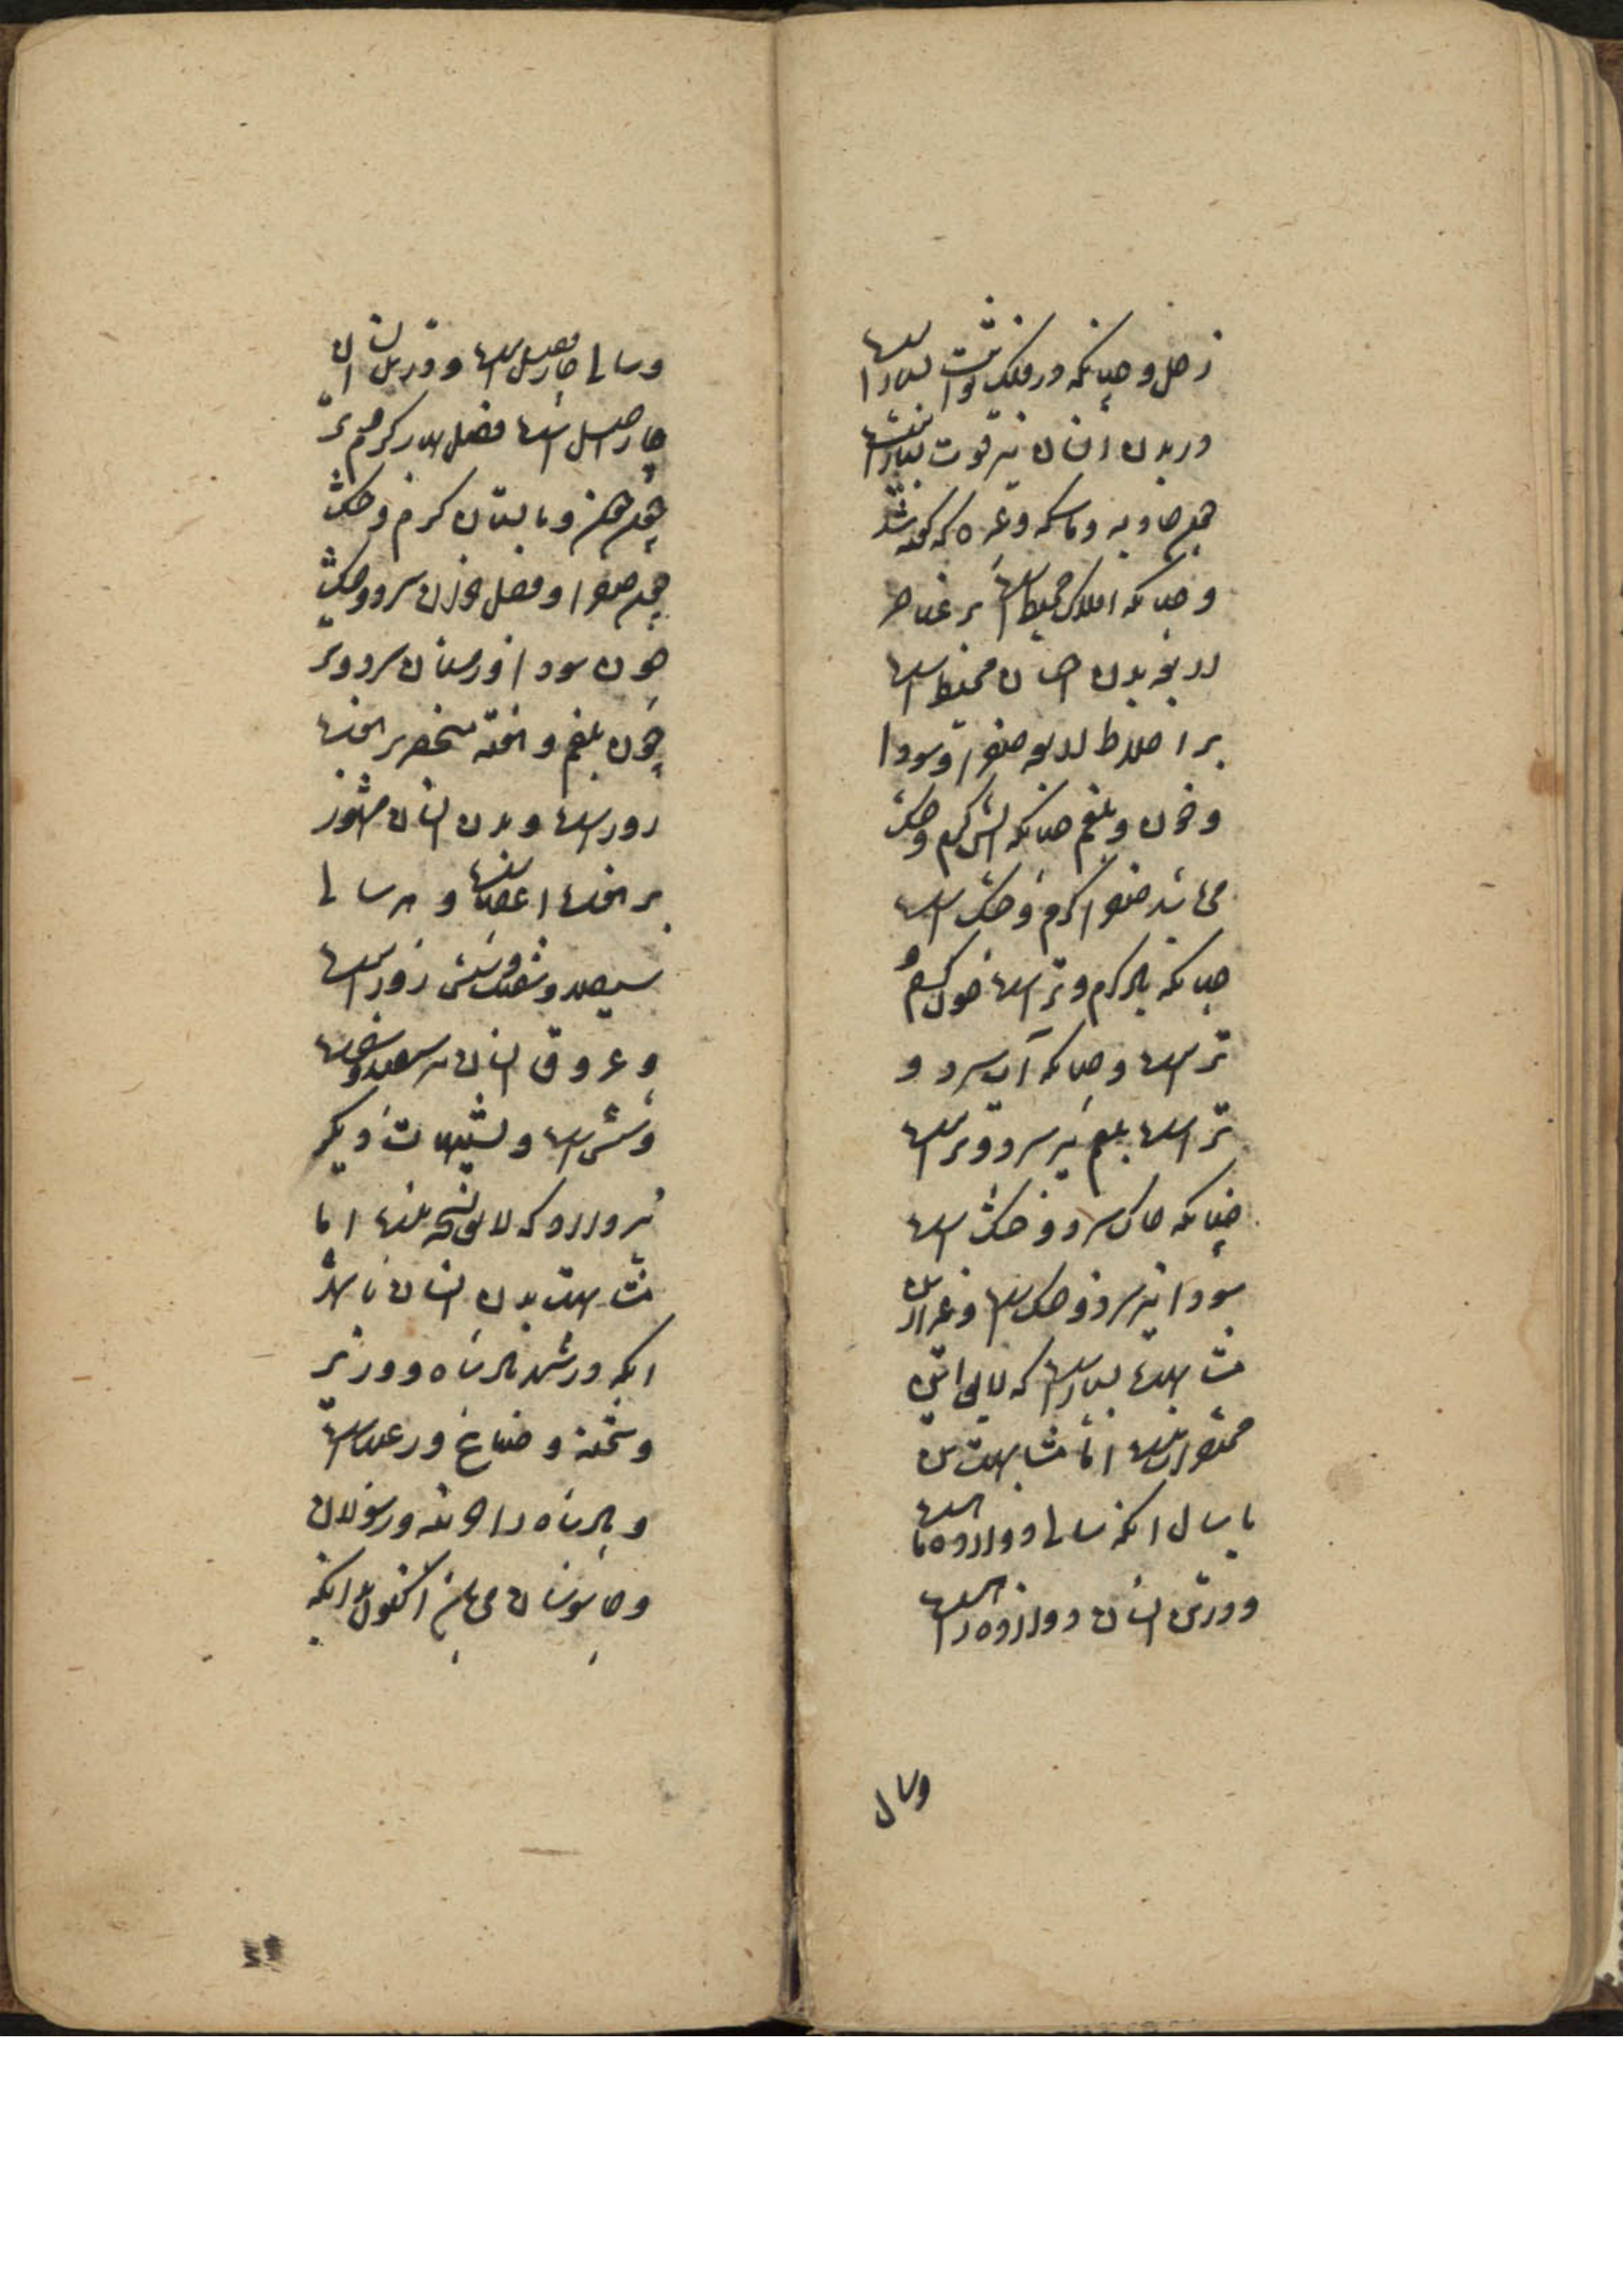 زحل و چنانکه در فلک ثوابت بسیار است
در بدن انسان نیز قوت بسیار است
همچو جاذبه و ماسکه و غیره که گفته شد
و چنانکه افلاک محیط است بر عناصر
اربعه بدن انسان محیط است
بر اخلاط اربعه صفرا و سودا
و خون و بلغم چنانکه آتش گرم و خشک
می باشد صفرا گرم و خشک است
چنانکه باد گرم و تر است خون گرم و
تر است و چنانکه آب سرد و
تر است بلغم نیز سرد و تر است
چنانکه خاک سرد و خشک است
سودا نیز سرد و خشک است و غیر از این
مشابهت بسیار است که لایق این
مختصر نیست اما مشابهت بدن
با سال آنکه سالی دوازده ماه است
و در تن انسان دوازده راه است
و سال
و سالی چهار فصل است و در بدن انسان
چهار اصل است فصل بهار گرم و تر
همچو خون و تابستان گرم و خشک
همچو صفرا و فصل خزان سرد و خشک
چون سودا و زمستان سرد و تر
چون بلغم و هفته منحصر بر هفت
روز است و بدن انسان هنوز
بر هفت اعضاست و هر سالی
سیصد و شصت و شش روز است
و عروق انسان نیز سیصد و شصت
و شش است و تشبیهات دیگر
نیز دارد که لایق نسخه نیست اما
مشابهت بدن انسان با شهر
آنکه در شهر پادشاه و وزیر
و شحنه و صناع و رعیت است
و پادشاه را البته رسولان
و جاسوسان می باید اکنون آنکه